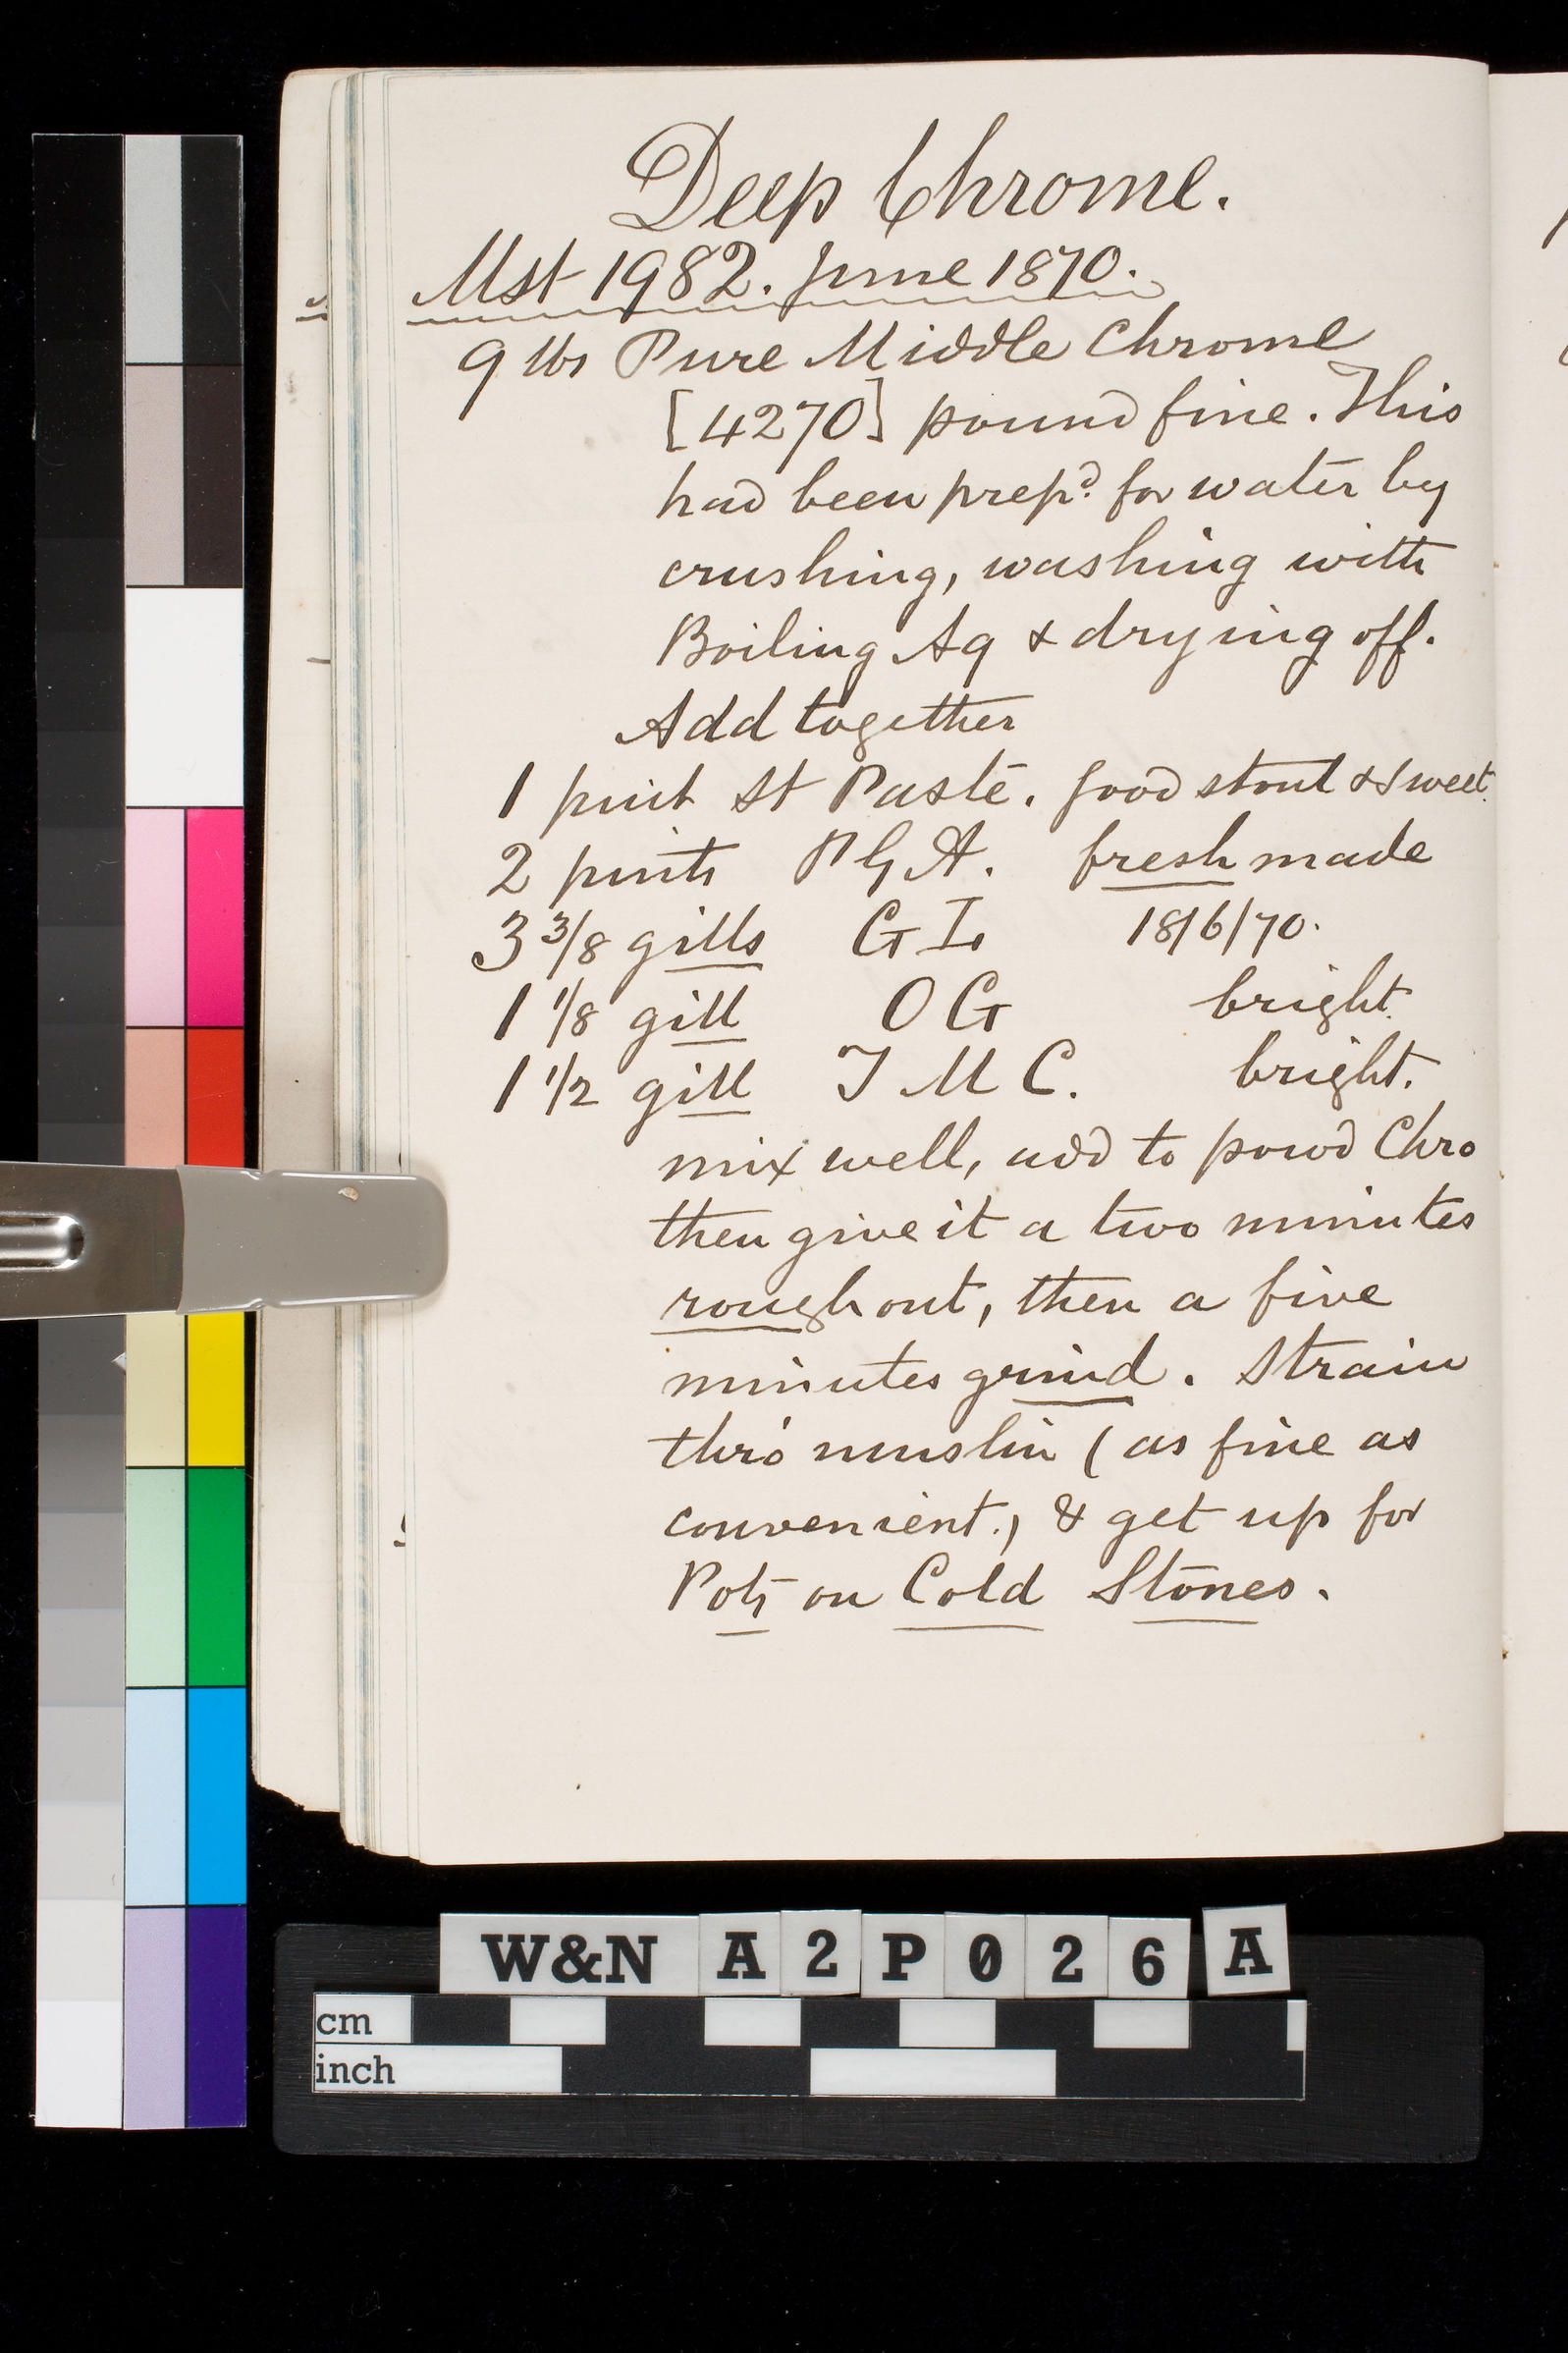 Deep Chrome.
Mst 1982. June 1870.
9 lbs Pure Middle Chrome
[4270] pound fine. This
had been prepd. for water by
crushing, washing with
Boiling Aq & drying off.
Add together
1 pint St Paste. good stout & sweet.
2 pints P G A. fresh made
3 3/8 gills G I. 18/6/70.
1 1/8 gill O G bright.
1 1/2 gill T M C. bright.
mix well, add to powd Chro
then give it a two minutes
rough out, then a five
minutes grind. Strain
thro' muslin (as fine as
convenient.) & get up for
Pots on Cold Stones.
W&N A2P026A
cm
inch